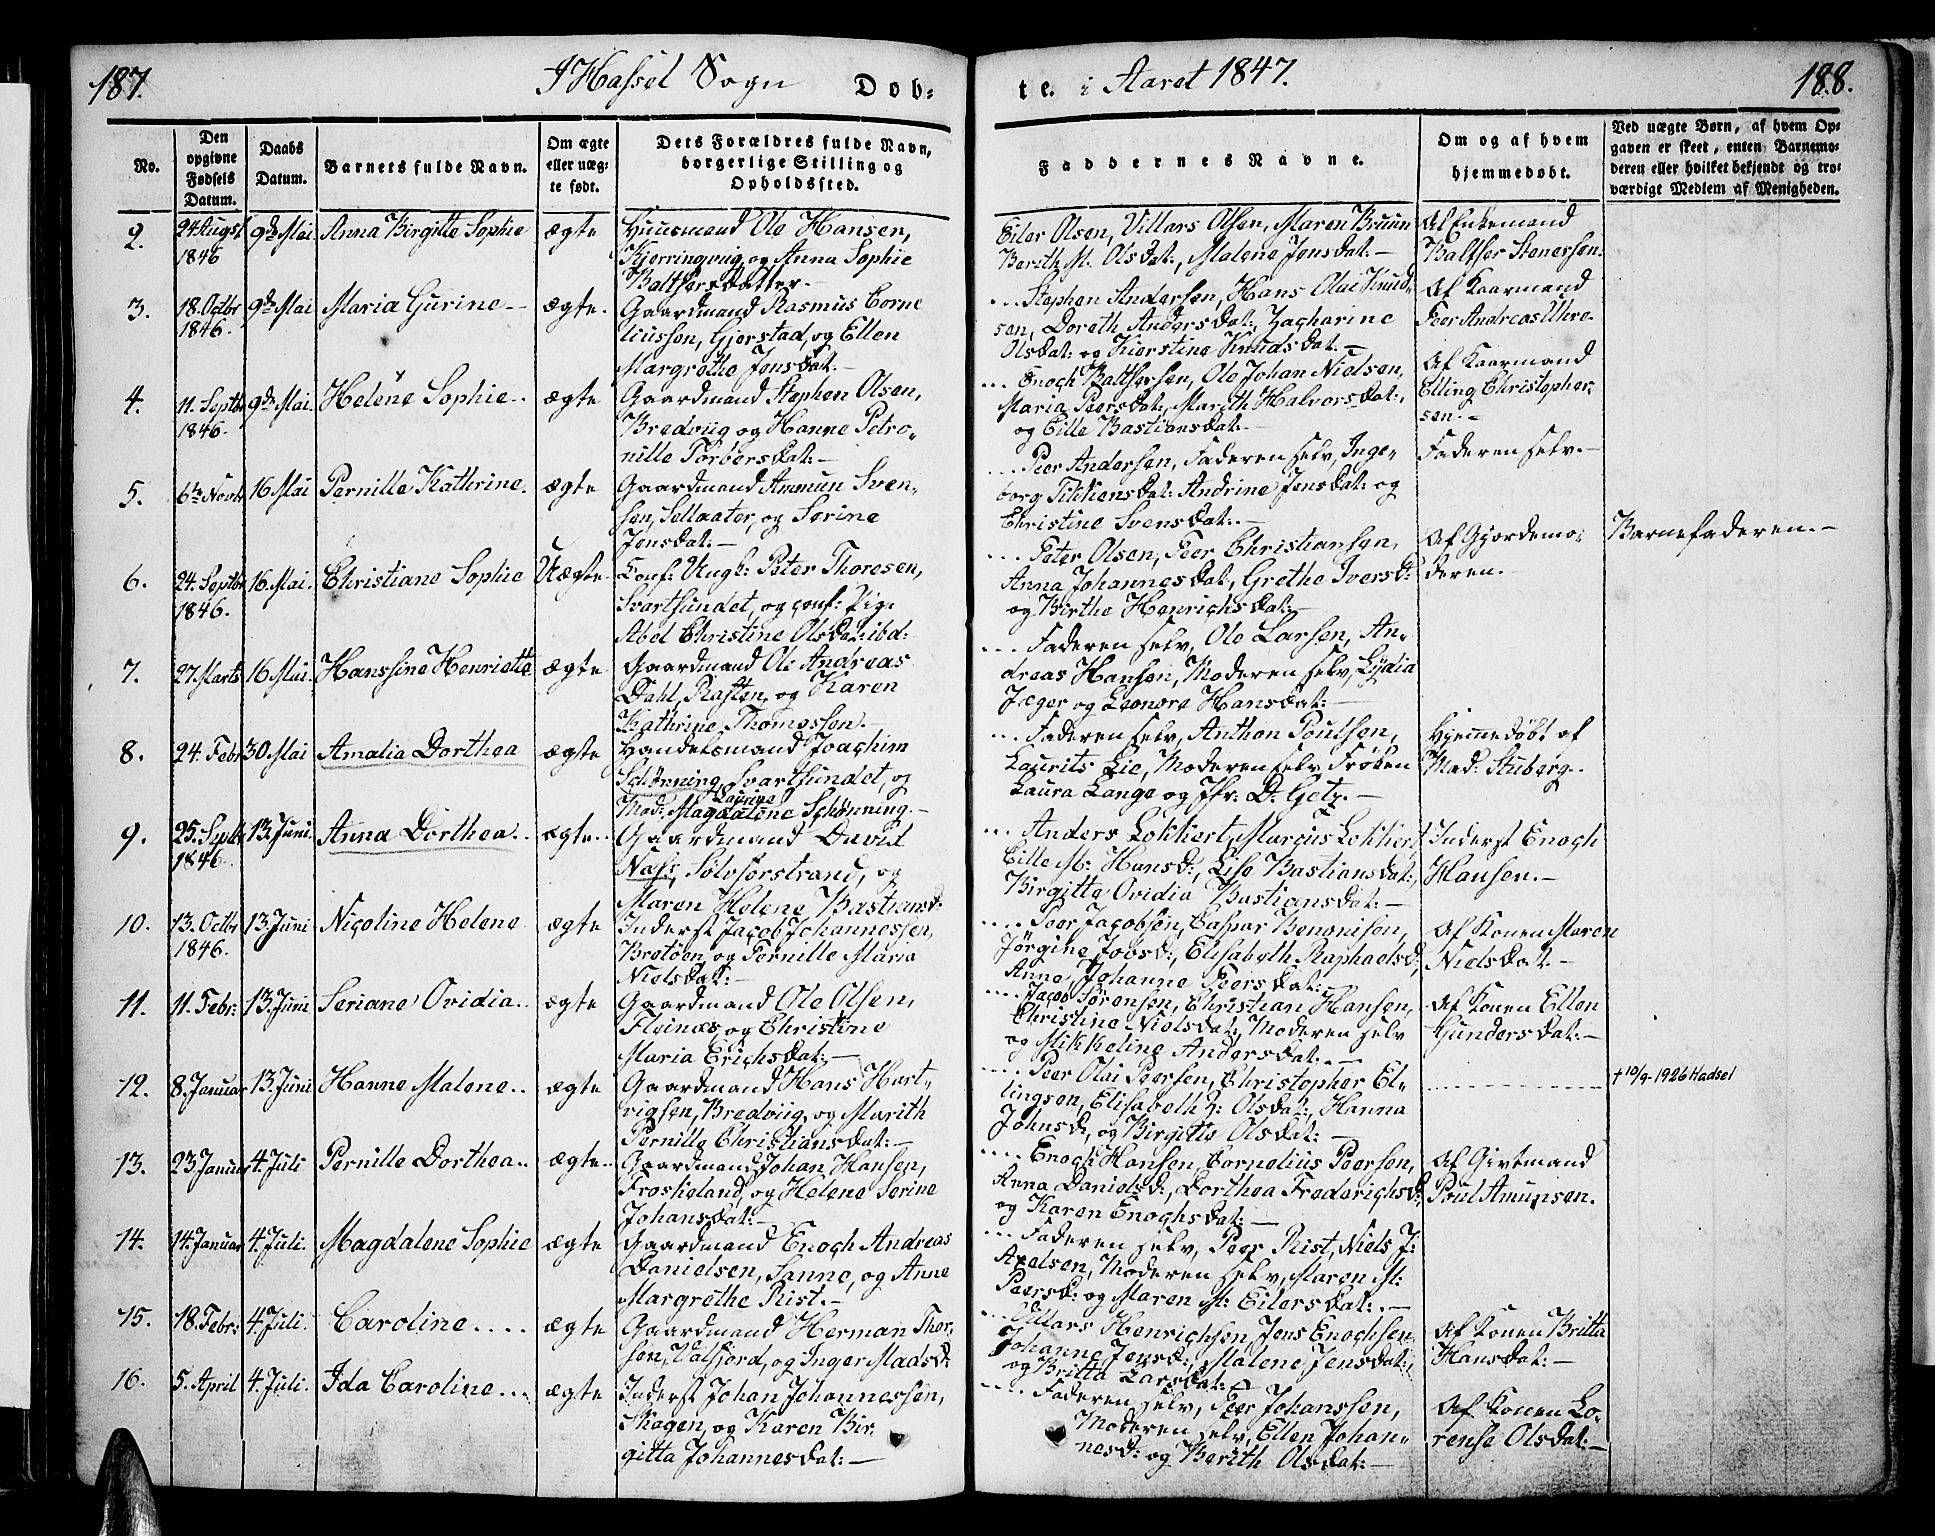 187.
I Hassel Sogn
Dob-
te.
i Aaret 1847.
188.
No.
Den opgivne Fødsels Datum.
Daabs Datum.
Barnets fulde Navn.
Om ægte eller uæg-
te født.
Dets Forældres fulde Navn,
borgerlige Stilling og
Opholdssted.
Faddernes Navne.
Om og af hvem
hjemmedøbt.
Ved uægte Børn, af hvem Op-
gaven er skeet, enten Barnemo-
deren eller hvilket bekjendt og tro-
værdigt Medlem af Menigheden.
2. 24 Augst 1846 9de Mai Anna Birgitte Sophie ægte
Huusmand Ole Hansen,
Kjerringviig, og Anna Sophie
Baltsersdatter.-
Eiler Olsen, Villars Olsen, Maren Bruun
Berith M. Olsdat:, Malene Jensdat:-
Af Enkemand
Baltser Stenersen.
3. 18. Octbr 1846. 9de Mai Maria Gurine- ægte.
Gaardmand Rasmus Corne
liussen, Gjerstad, og Ellen
Margrethe Jensdat:-
... Stephen Andersen, Hans Olai Knud-
sen, Doreth Andersdat:, Zacharine
Olsdat: og Kierstine Knudsdat:-
Af Kaarmand
Peer Andreas Uhre.
4. 11. Septbr 1846. 9de Mai. Helene Sophie.. ægte
Gaardmand Stephen Olsen,
Bredviig og Hanne Petro-
nille Torbersdat:-
... Enoch Baltsersen, Ole Johan Nielsen,
Maria Peersdat:, Mareth Halvorsdat:,
og Cille Bastiansdat:-
Af Kaarmand
Elling Christopher-
sen.-
5. 6te Novbr 16 Mai Pernille Kathrine. ægte
Gaardmand Ammun Sven-
sen, Sellaater, og Serine
Jensdat:-
.... Peer Andersen, Faderen selv, Inge-
borg Tikkensdat: Andrine Jensdat: og
Christine Svensdat:.-
Faderen selv.-
6. 24. Septbr 1846. 16. Mai. Christiane Sophie Uægte.
Conf: Ungk: Peter Thoresen,
Svartsundet, og conf: Pige
Abel Christine Olsdat: ibd:
.... Peter Olsen, Peer Christiansen,
Anna Johannesdat:, Grethe Iversd:
og Birthe Henrichsdat:-
Af Gjordemo-
deren.-
Barnefaderen.-
7. 27. Marts 16 Mai. Hanssine Henriette ægte
Gaardmand Ole Andreas
Dahl, Rasten, og Karen
Kathrine Thomessen.-
.... Faderen selv, Ole Larsen, An-
dreas Hansen, Moderen selv, Lydia
Jæger og Leonore Hansdat:-
8. 24. Febr 30 Mai Amalia Dorthea ægte
Handelsmand Joachim
Schønning, Svartsundet, og
Mad: Magdalene Laurine Schønning.-
... Faderen selv, Anthon Poulsen,
Laurits Lie, Moderen selv Frøken
Laura Lange og Jfr: D. Getz.-
Hjemmedøbt af
Mad: Stuberg.
9. 25. Septbr 1846. 13. Juni. Anna Dorthea.. ægte..
Gaardmand David
Næss, Sølvforstrand, og
Maren Helene Bastiansd:
... Anders Lokkert, Marcus Lokkert
Cille M: Hansd:, Lise Bastiansdat:,
Birgitta Ovidia Bastiansdat:-
Inderst Enoch
Hansen.-
10. 13. Octbr 1846. 13. Juni Nicoline Helene ægte
Inderst Jacob Johannessen,
Brotøen, og Pernille Maria
Nielsdat:-
.... Peer Jacobsen, Caspar Benonisen,
Jørgine Jobsd:, Elisabeth Raphaelsd:,
Anne Johanne Peersdat:-
Af Konen Maren
Nielsdat:-
11. 11. Febr: 13. Juni Seriane Ovidia.. ægte
Gaardmand Ole Olsen,
Fleinæs og Christine
Maria Erichsdat:-
.... Jacob Sørensen, Christian Hansen,
Christine Nielsdat:, Moderen selv
og Mikkeline Andersdat:.-
Af Konen Ellen
Gundersdat:-
12. 8. Januar 13. Juni Hanne Malene.. ægte
Gaardmand Hans Hart-
vigsen, Bredviig, og Marith
Pernille Christiansdat:-
.... Peer Olai Peersen, Christopher El-
lingsen, Elisabeth J: Olsdat:, Hanna
Johnsd:, og Birgitte Olsdat:-
† 10/9-1926 Hadsel
13. 23 Januar 4. Juli Pernille Dorthea.. ægte..
Gaardmand Johan Hansen,
Froskeland, og Helene Serine
Johansdat:-
..... Enoch Hansen Cornelius Peersen,
Anna Danielsd:, Dorthea Frederichsd:,
og Karen Enochsdat:-
Af Givtmand
Poul Amunsen.
14. 14 Januar 4. Juli. Magdalene Sophie ægte
Gaardmand Enoch Andreas
Danielsen, Sanne, og Anne
Margrethe Rist.-
... Faderen selv, Peer Rist, Niels J:
Axelsen, Moderen selv, Maren M:
Peersd: og Maren M: Eilersdat:.-
15. 18. Febr: 4. Juli. Caroline.... ægte
Gaardmand Herman Thor-
sen, Valfjord, og Inger Madsd:
... Villars Henrichsen, Jens Enochsen,
Johanne Jensd:, Malene Jensdat:,
og Britta Larsdat:-
Af Konen Britta
Hansdat:-
16. 5. April 4. Juli. Ida Caroline... ægte
Inderst Johan Johannessen,
Skagen, og Karen Bir-
gitta Johannesdat:-
.... Faderen selv, Peer Johanssen,
Moderen selv, Ellen Johan-
nesd: og Berith Olsdat:-
Af Konen Lo-
rense Olsdat:-